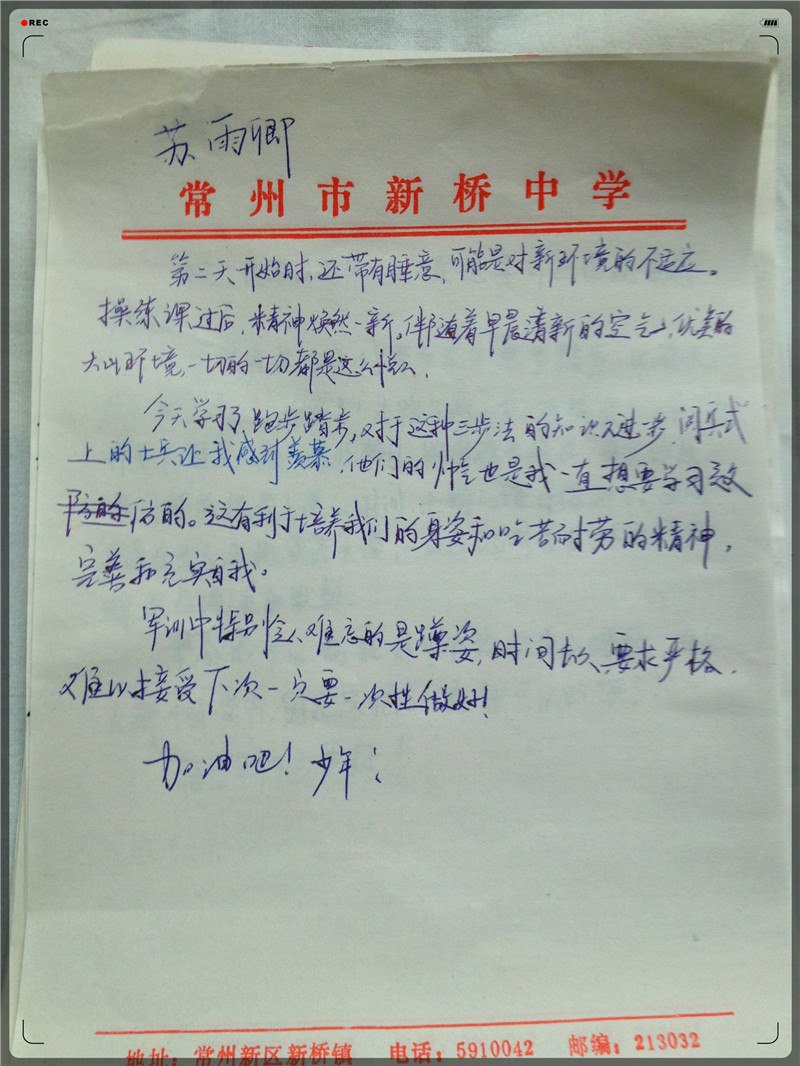 REC
苏雨卿
常州市新桥中学
第二天开始时，还带有睡意，可能是对新环境的不适应。
操练课过后，精神焕然一新。伴随着早晨清新的空气，优美的
大山环境，一切的一切都是这么怡人。
今天学习了跑步踏步，对于这种三步法的知识又进步，阅兵式
上的士兵让我感到羡慕，他们的步伐也是我一直想要学习效
仿的。这有利于培养我们的身姿和吃苦耐劳的精神，
完善和充实自我。
军训中特别令人难忘的是蹲姿，时间太久，要求严格，
难以接受下次一定要一次性做好！
加油吧！少年！
地址：常州新区新桥镇 电话：5910042 邮编：213032